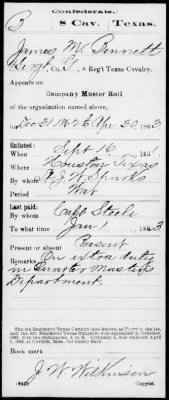 Confederate.
3
8 Cav. Texas.
James M. Bennett
Sergt, Co. A, 8 Reg't Texas Cavalry.
Appears on
Company Muster Roll
of the organization named above,
for Dec 31 1862 to Apr 30, 1863
Enlisted:
When Sept 16, 1861
Where Houston Texas
By whom J. W. Sparks
Period War
Last paid:
By whom Capt Steele
To what time Jan 1, 1863
Present or absent Present
Remarks: On extra duty
in Quarter Masters
Department.
Book mark:
J. W. Wilkinson
(642) Copyist.